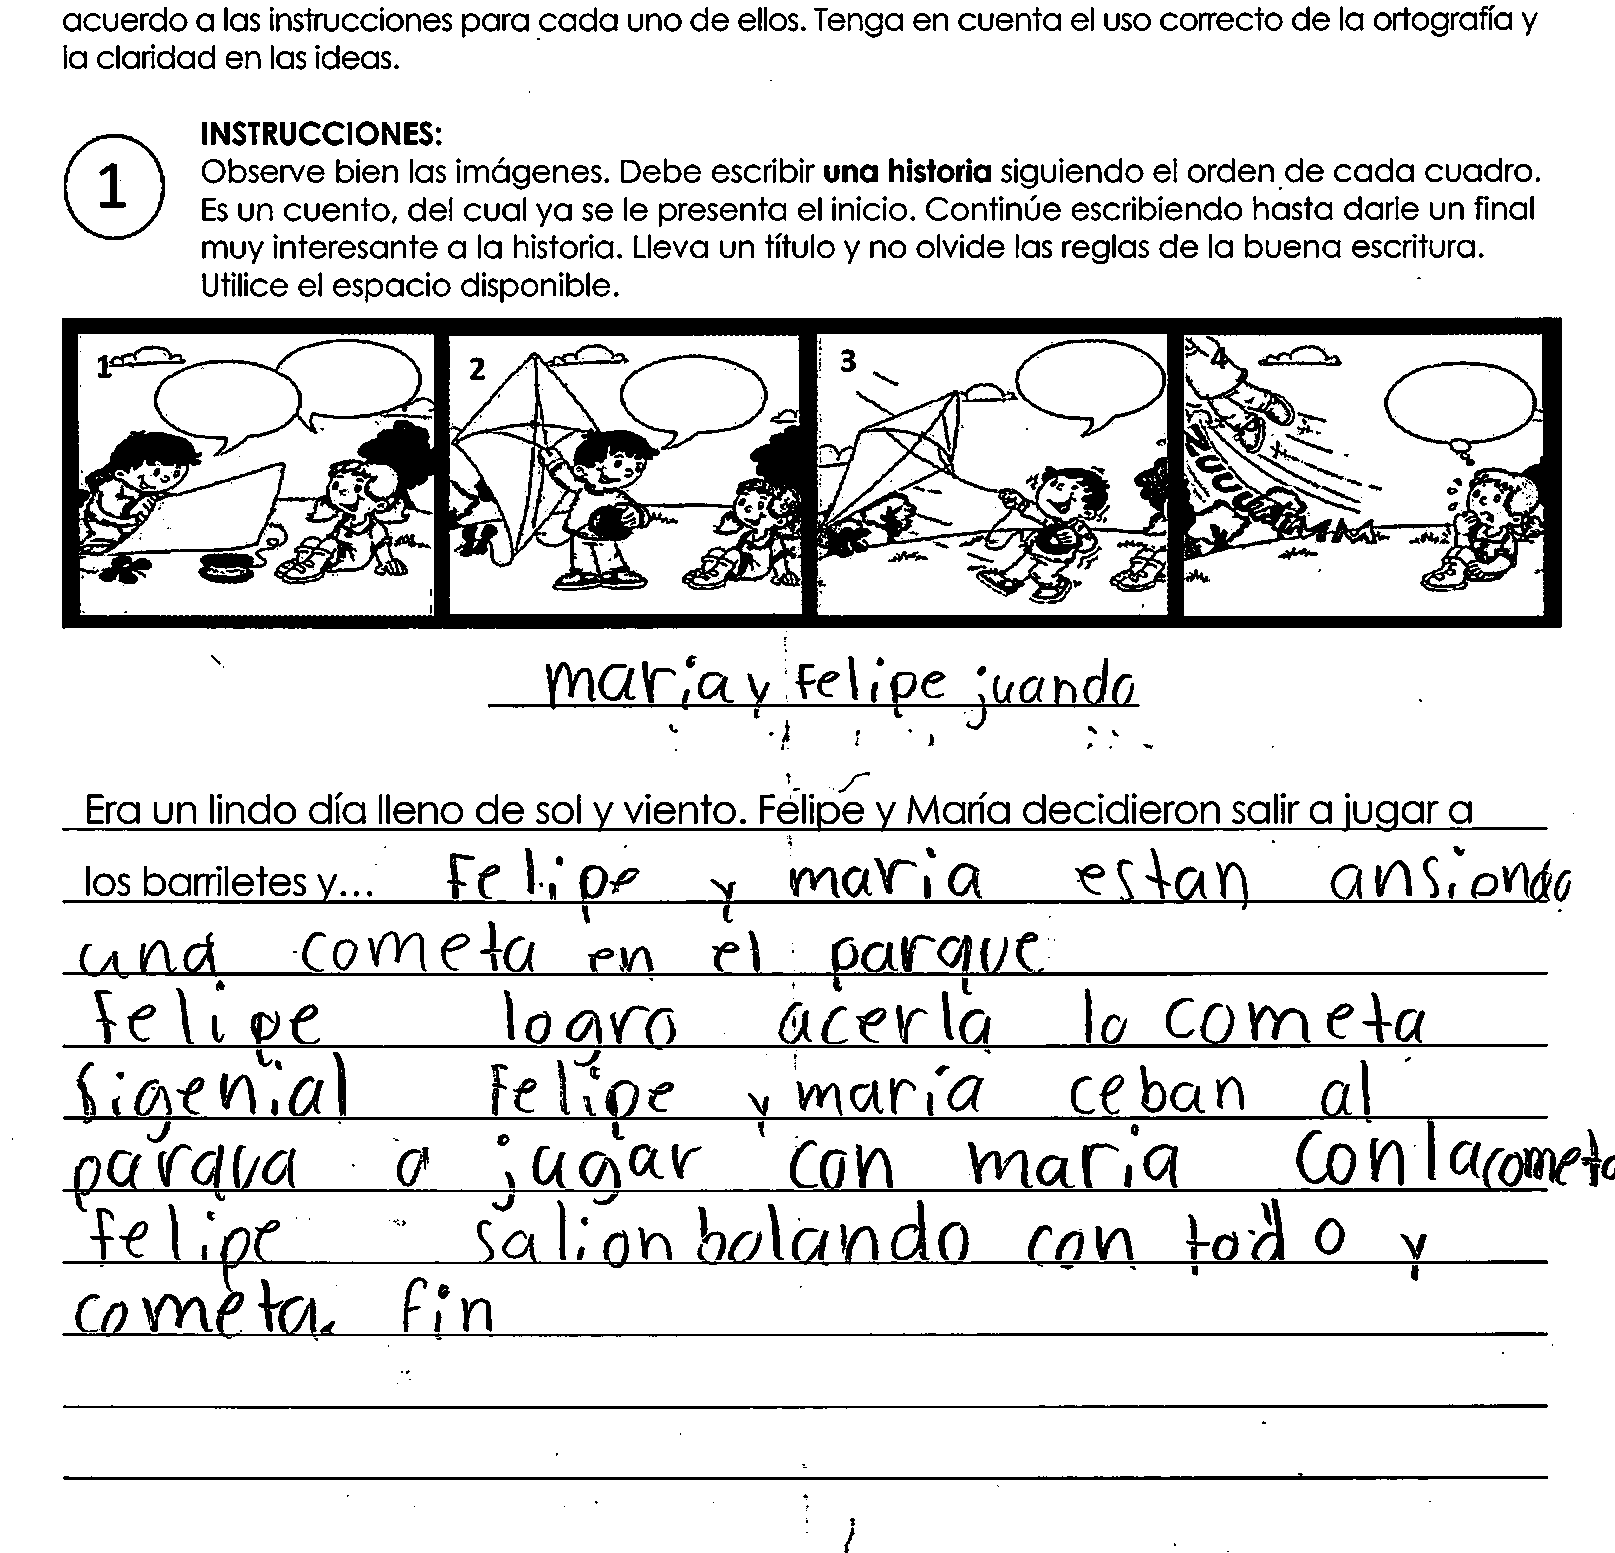 acuerdo a las instrucciones para cada uno de ellos. Tenga en cuenta el uso correcto de la ortografía y
la claridad en las ideas.
1
INSTRUCCIONES:
Observe bien las imágenes. Debe escribir una historia siguiendo el orden de cada cuadro.
Es un cuento, del cual ya se le presenta el inicio. Continúe escribiendo hasta darle un final
muy interesante a la historia. Lleva un título y no olvide las reglas de la buena escritura.
Utilice el espacio disponible.
1 2 3 4
ZUUUUMMM
maría y Felipe juando
Era un lindo día lleno de sol y viento. Felipe y María decidieron salir a jugar a
los barriletes y... Felipe y maria estan ansiondo
una cometa en el parque
Felipe logro acerla la cometa
Sigenial Felipe y maría ceban al
parqua a jugar con maria con la cometa
felipe salion bolando con todo y
cometa. fin